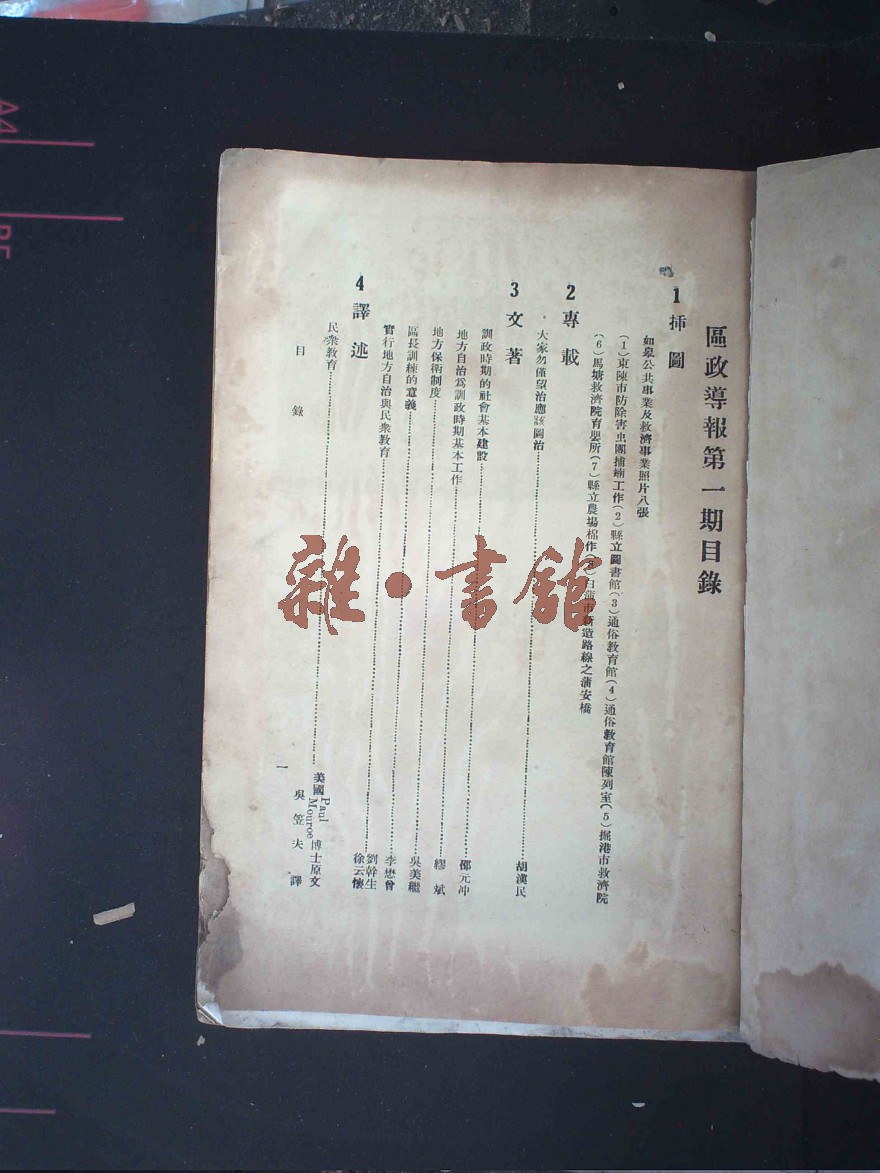 區政導報第一期目錄
1 插圖
如皋公共事業及救濟事業照片八張
(1)東陳市防除害虫團捕蝻工作(2)縣立圖書館(3)通俗教育館(4)通俗教育館陳列室(5)掘港市救濟院
(6)馬塘救濟院育嬰所(7)縣立農場棉作(8)白蒲市新造路線之蒲安橋
2 專載
大家勿僅望治應該圖治……胡漢民
3 文著
訓政時期的社會基本建設……邵元冲
地方自治爲訓政時期基本工作……繆斌
地方保衛制度……吳美繼
區長訓練的意義……李懋曾
實行地方自治與民衆教育……劉幹生 徐云懷
4 譯述
民衆教育……美國 Paul Mouroe 博士原文
吳笠夫譯
目錄
一
雜·書館
A4